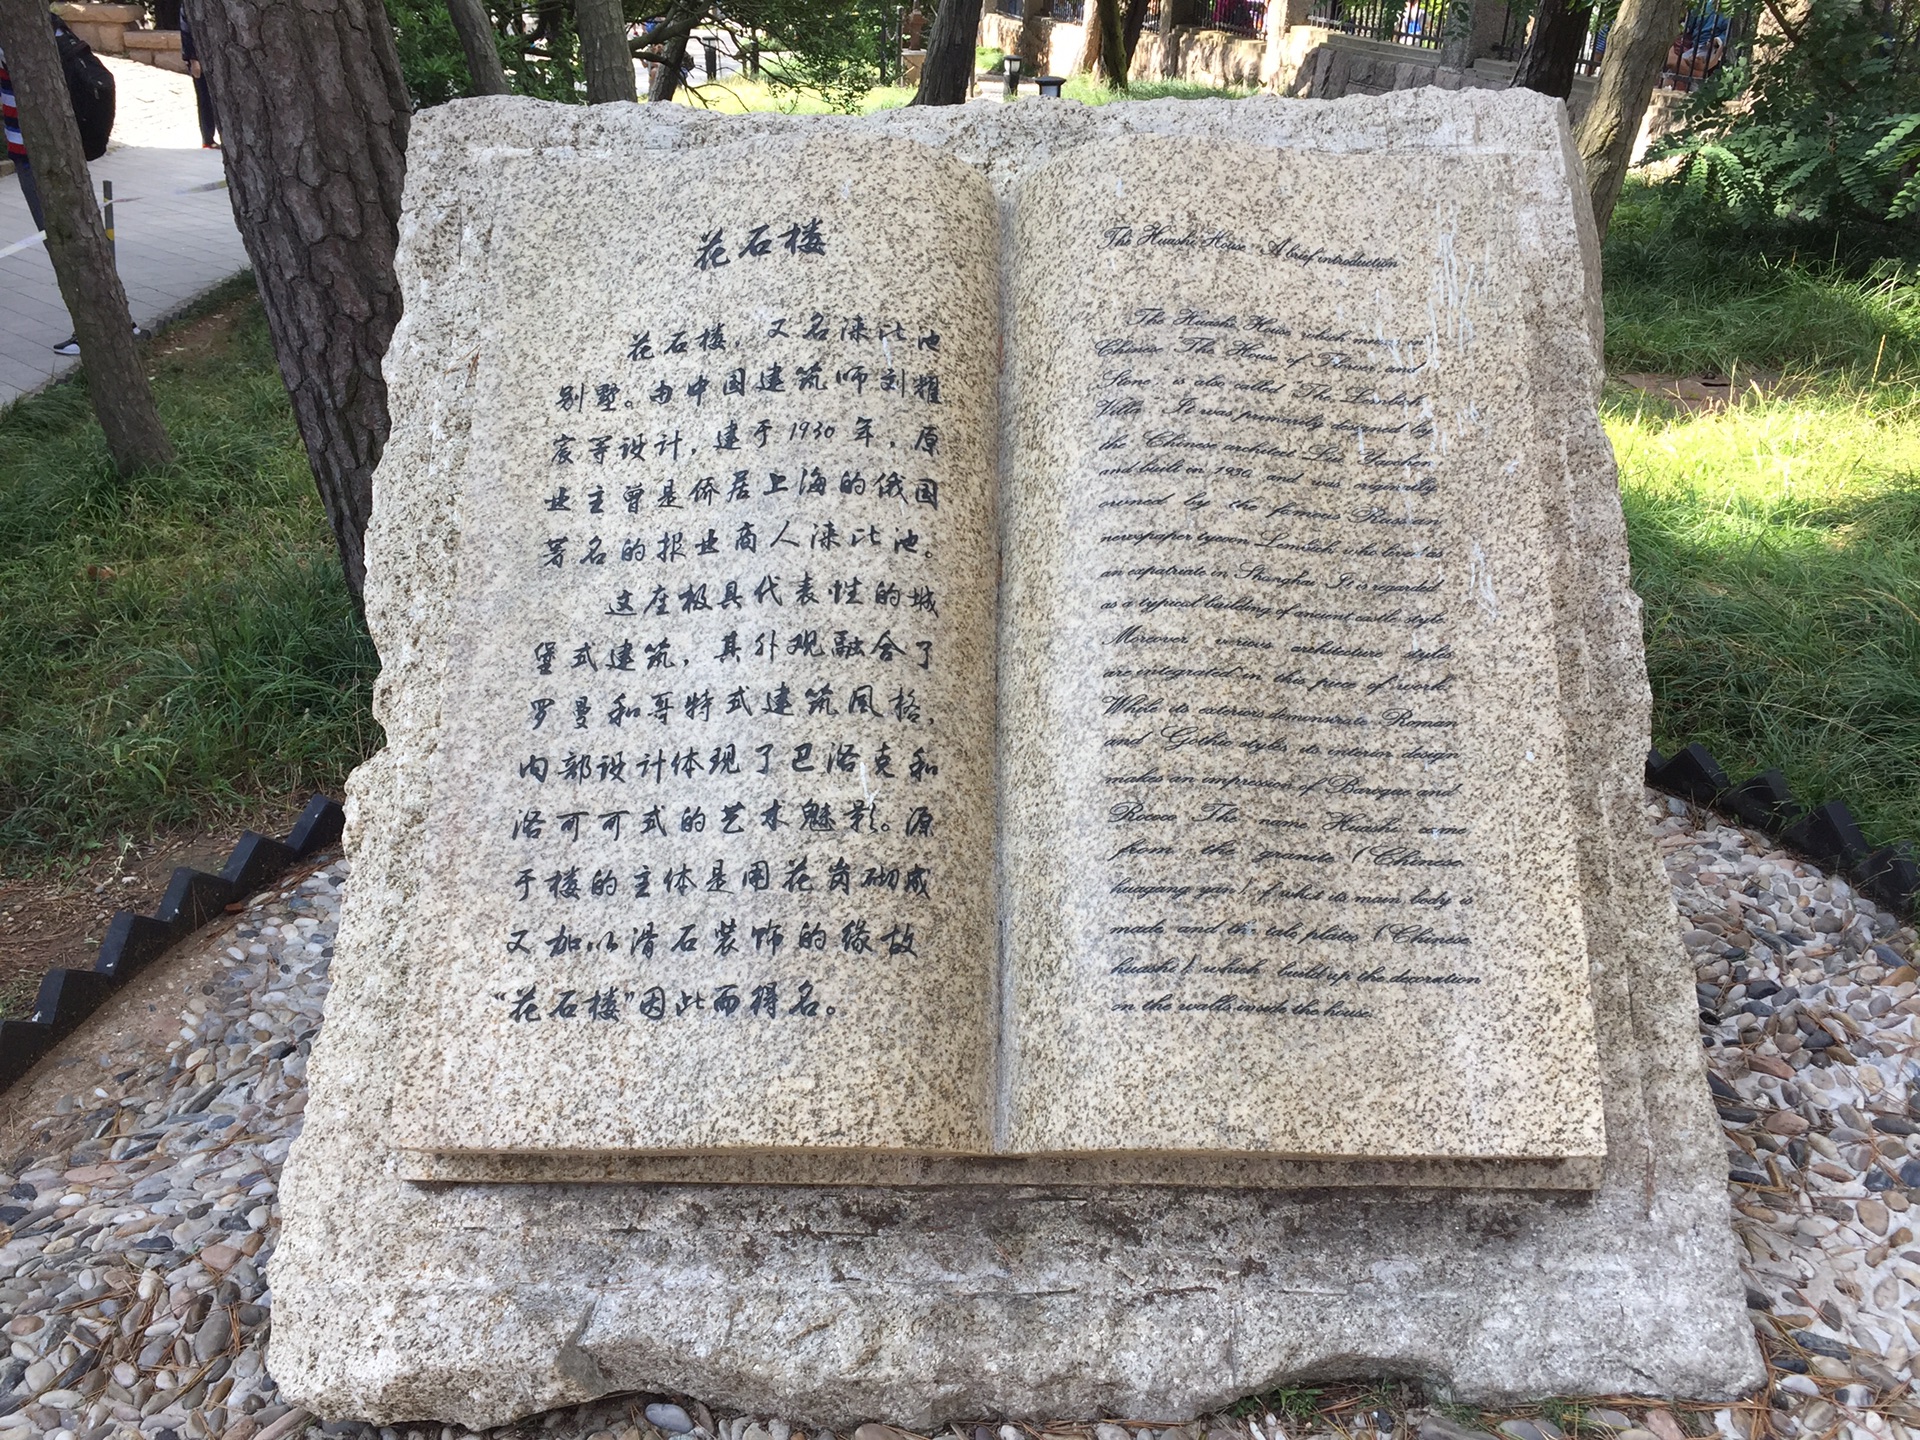 花石楼
花石楼，又名涞比池
别墅。由中国建筑师刘耀
宸等设计，建于1930年，原
业主曾是侨居上海的俄国
著名的报业商人涞比池。
这座极具代表性的城
堡式建筑，其外观融合了
罗曼和哥特式建筑风格，
内部设计体现了巴洛克和
洛可可式的艺术魅影。源
于楼的主体是用花岗砌成
又加以滑石装饰的缘故
“花石楼”因此而得名。
The Huashi House: A brief introduction
The Huashi House, which means in
Chinese "The House of Flower and
Stone", is also called "The Lembich
Villa". It was primarily designed by
the Chinese architect Liu Yaochen,
and built in 1930, and was originally
owned by the famous Russian
newspaper tycoon Lembich who lived as
an expatriate in Shanghai. It is regarded
as a typical building of ancient castle style.
Moreover, various architecture styles
are integrated in this piece of work.
While its exteriors demonstrate Roman
and Gothic styles, its interior design
makes an impression of Baroque and
Rococo. The name Huashi came
from the granite (Chinese:
huagang yan) of what its main body is
made and the talc plates (Chinese:
huashi) which build up the decoration
on the walls inside the house.